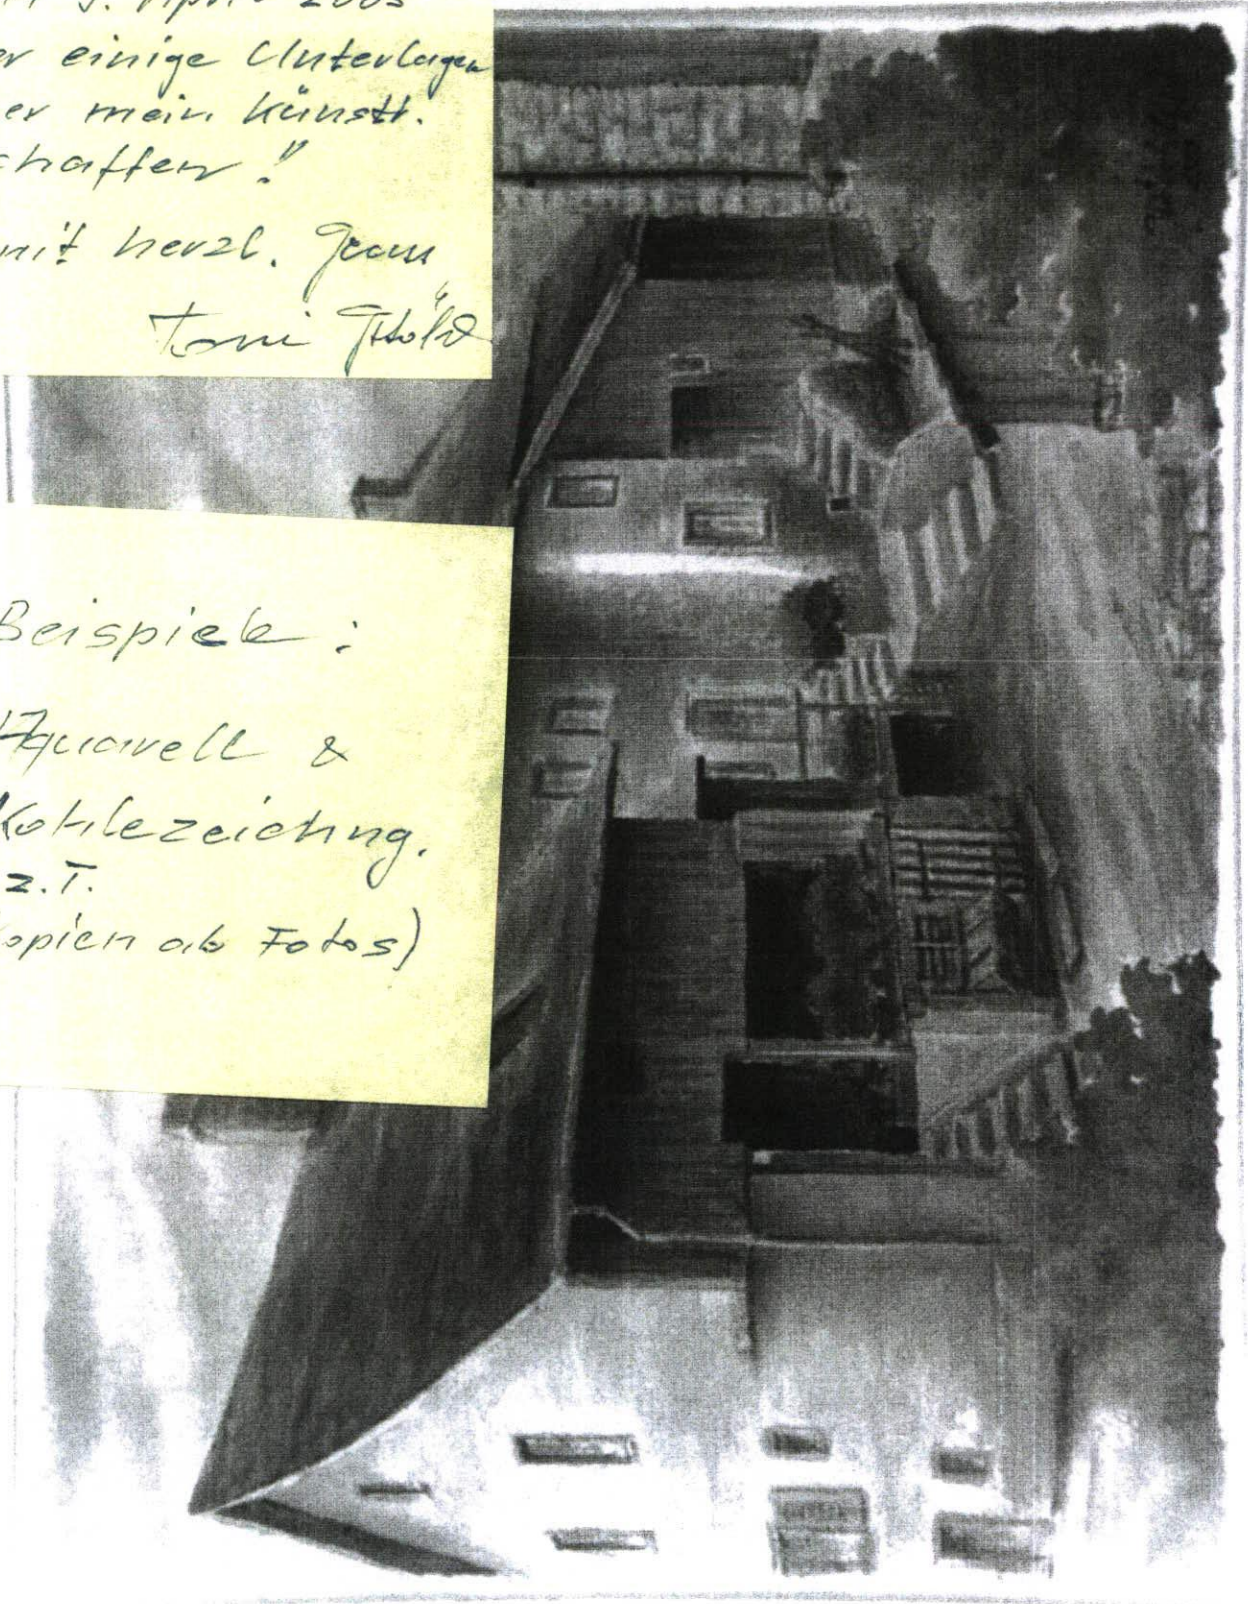 April 2003
einige Unterlagen
er mein künstl.
chaffen !
mit herzl. Gruss
Toni
Beispiele :
Aquarell &
Kohlezeichng.
z.T.
opien ab Fotos)